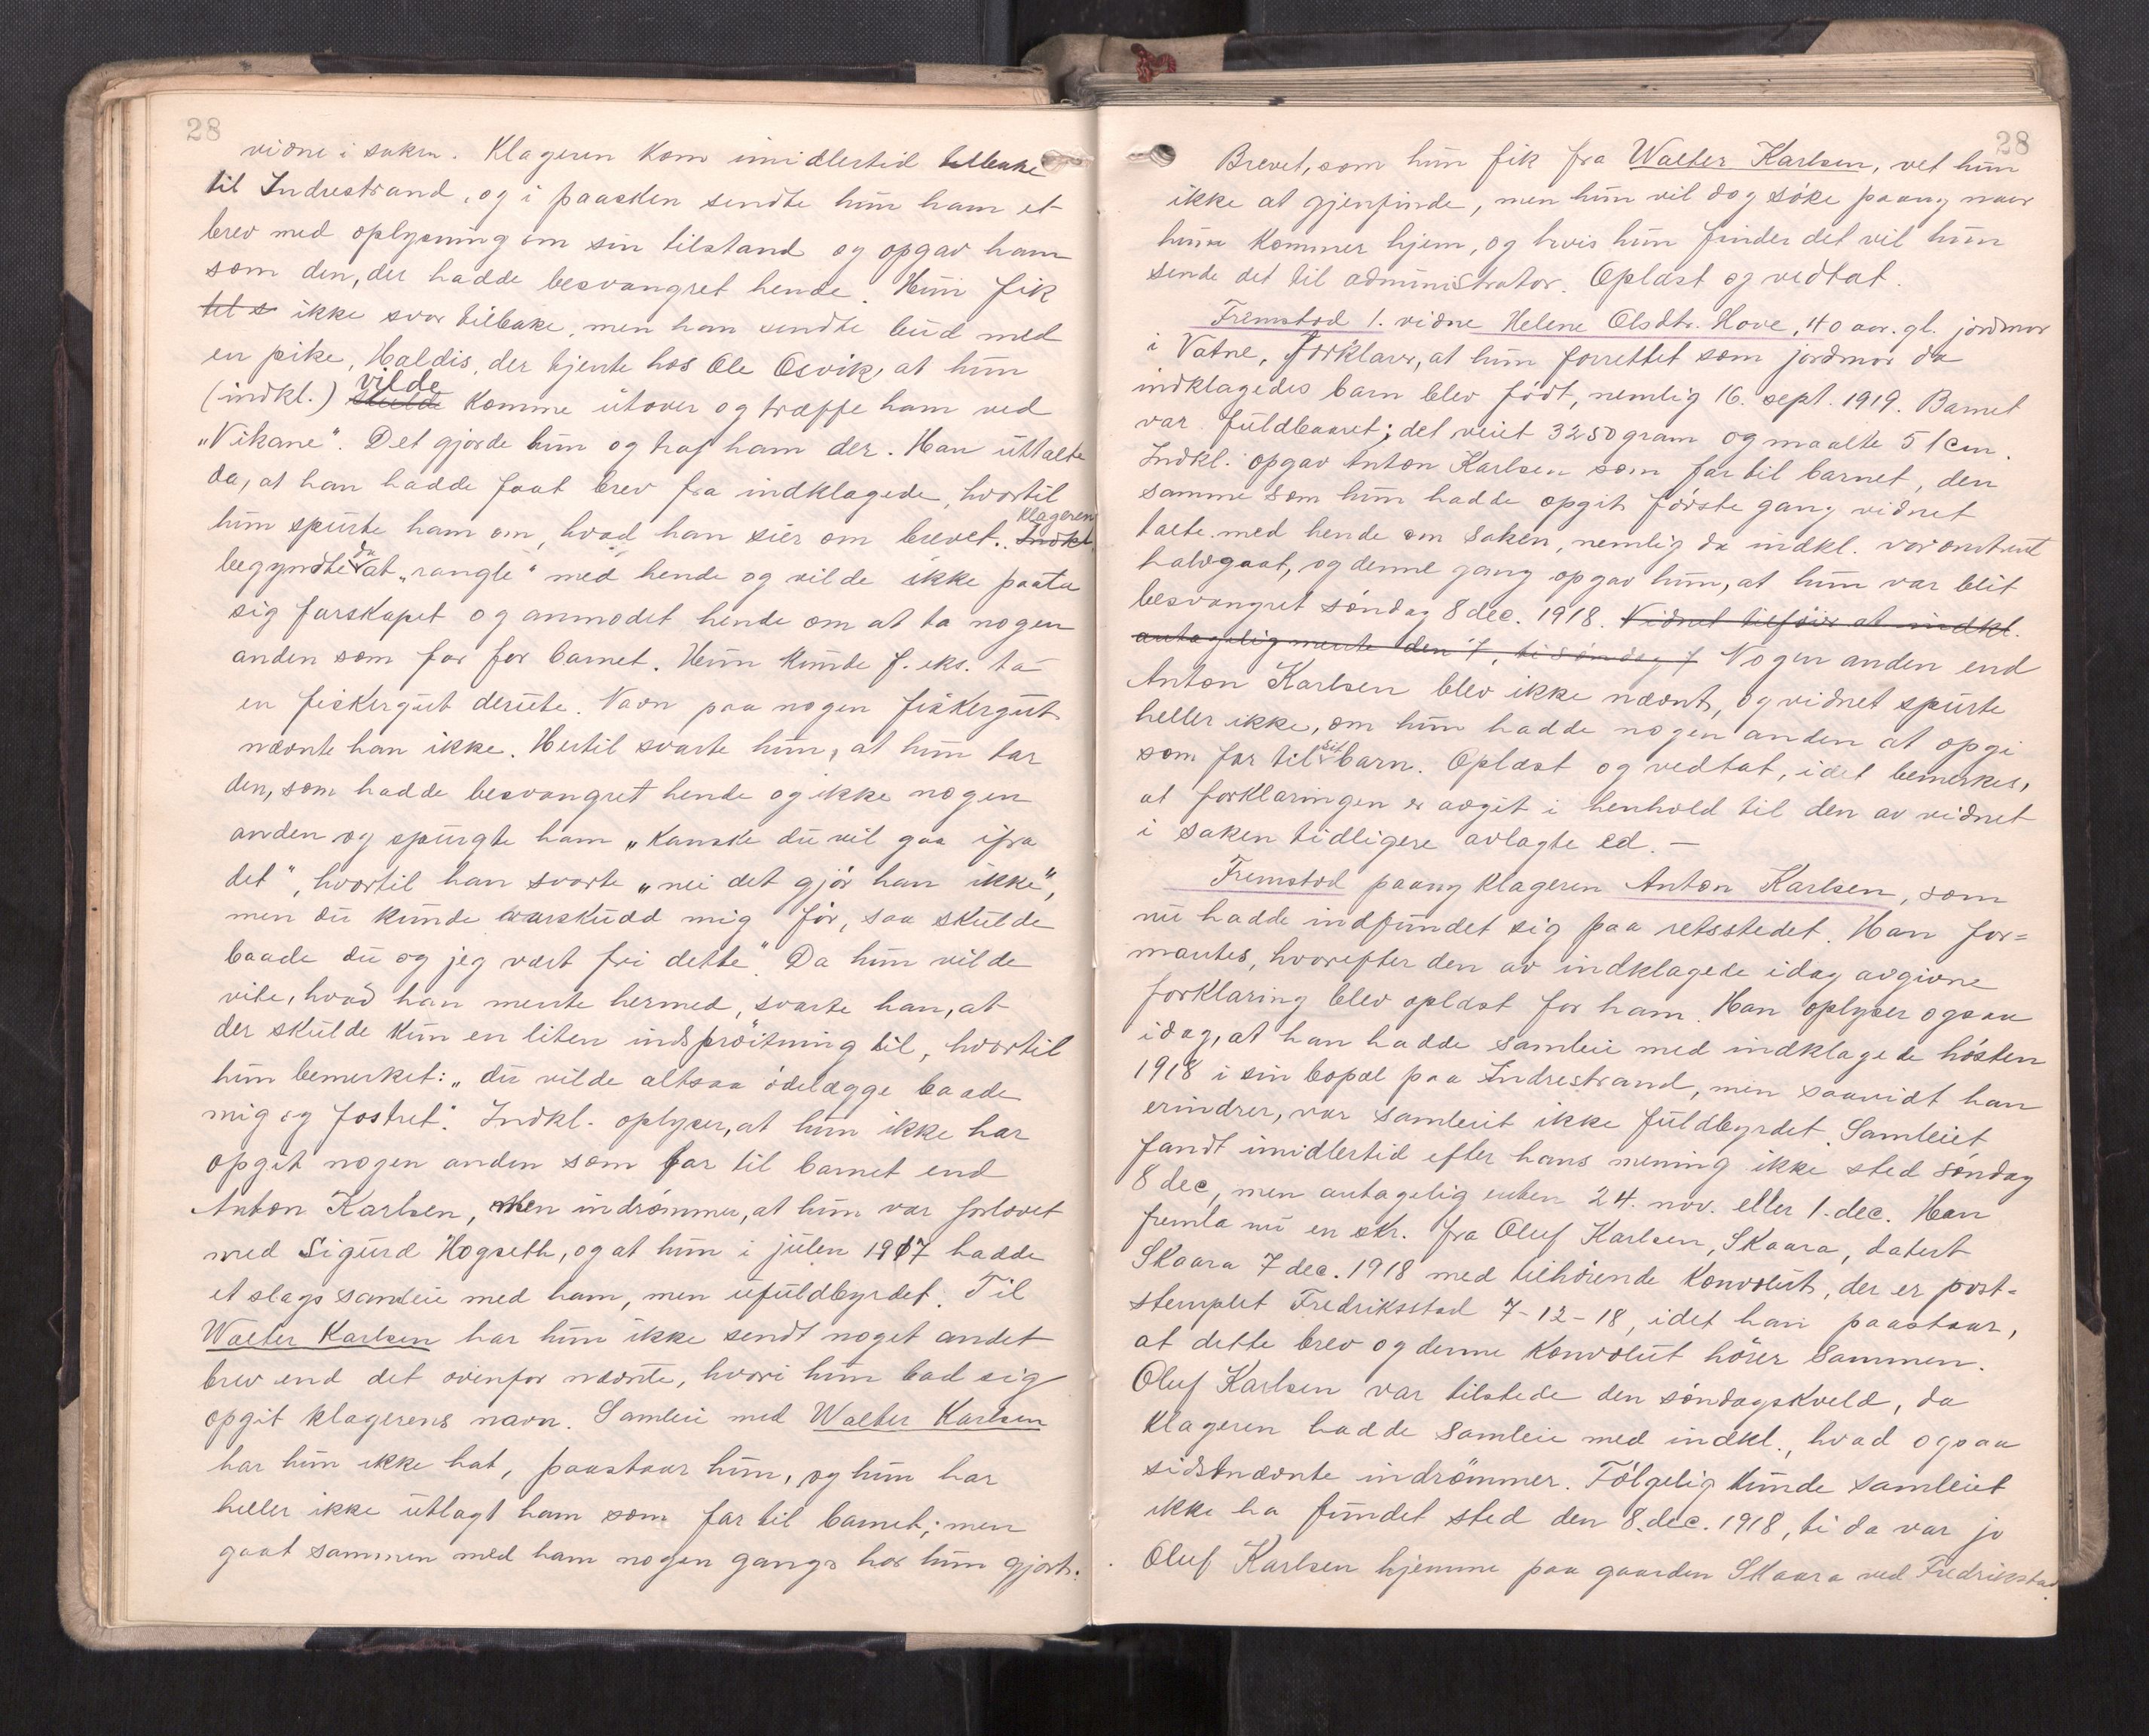 28
vidne i saken. Klageren kom imidlertid tilbake
til Indrestrand, og i paasken sendte hun ham et
brev med oplysning om sin tilstand og opgav ham
som den, der hadde besvangret hende. Hun fik
til s ikke svar tilbake, men han sendte bud med
en pike, Haldis, der tjente hos Ole Osvik, at hun
vilde
(indkl.) skulde komme utover og træffe ham ved
„Vikane". Det gjorde hun og traf ham der. Han uttalte
da, at han hadde faat brev fra indklagede, hvortil
klageren
hun spurte ham om, hvad han sier om brevet. Indkl.
da
begyndte at „rangle" med hende og vilde ikke paata
sig farskapet og anmodet hende om at ta nogen
anden som far for barnet. Hun kunde f. eks. ta
en fiskergut derute. Navn paa nogen fiskergut
nævnte han ikke. Hertil svarte hun, at hun tar
den, som hadde besvangret hende og ikke nogen
anden og spurgte ham „kanske du vil gaa ifra
det", hvortil han svarte „nei det gjør han ikke",
men du kunde warskudd mig før, saa skulde
baade du og jeg vært fri dette". Da hun vilde
vite, hvad han mente hermed, svarte han, at
der skulde kun en liten indsprøitning til, hvortil
hun bemerket: „du vilde altsaa ødelægge baade
mig og fostret". Indkl. oplyser, at hun ikke har
opgit nogen anden som far til barnet end
Anton Karlsen, men indrømmer, at hun var forlovet
med Sigurd Hogseth, og at hun i julen 1917 hadde
et slags samleie med ham, men ufuldbyrdet. Til
Walter Karlsen har hun ikke sendt noget andet
brev end det ovenfor nævnte, hvori hun bad sig
opgit klagerens navn. Samleie med Walter Karlsen
har hun ikke hat, paastaar hun, og hun har
heller ikke utlagt ham som far til barnet; men
gaat sammen med ham nogen gange har hun gjort.
28
Brevet, som hun fik fra Walter Karlsen, vet hun
ikke at gjenfinde, men hun vil dog søke paany naar
hun kommer hjem, og hvis hun finder det vil hun
sende det til administrator. Oplæst og vedtat.
Fremstod 1. vidne Helene Olsdtr. Hove, 40 aar. gl. jordmor
i Vatne, forklarer, at hun forrettet som jordmor da
indklagedes barn blev født, nemlig 16. sept. 1919. Barnet
var fuldbaaret; det veiet 3250 gram og maalte 51 cm.
Indkl. opgav Anton Karlsen som far til barnet, den
samme som hun hadde opgit første gang vidnet
talte med hende om saken, nemlig da indkl. var omtrent
halvgaat, og denne gang opgav hun, at hun var blit
besvangret søndag 8 dec. 1918. Vidnet tilføier at indkl.
antageligmente den 7, ti søndag 7 Nogen anden end
Anton Karlsen blev ikke nævnt, og vidnet spurte
heller ikke, om hun hadde nogen anden at opgi
sit
som far til barn. Oplæst og vedtat, idet bemerkes,
at forklaringen er avgit i henhold til den av vidnet
i saken tidligere avlagte ed. —
Fremstod paany klageren Anton Karlsen, som
nu hadde indfundet sig paa retsstedet. Han for=
mantes, hvorefter den av indklagede idag avgivne
forklaring blev oplæst for ham. Han oplyser ogsaa
idag, at han hadde samleie med indklagede høsten
1918 i sin bopæl paa Indrestrand, men saavidt han
erindrer, var samleiet ikke fuldbyrdet. Samleiet
fandt imidlertid efter hans mening ikke sted søndag
8 dec, men antagelig enten 24. nov. eller 1. dec. Han
fremla nu en skr. fra Oluf Karlsen, Skaara, datert
Skaara 7 dec. 1918 med tilhørende konvolut, der er post-
stemplet Fredriksstad 7-12-18, idet han paastaar,
at dette brev og denne konvolut hører sammen.
Oluf Karlsen var tilstede den søndagskveld, da
klageren hadde samleie med indkl., hvad ogsaa
sidstnævnte indrømmer. Følgelig kunde samleiet
ikke ha fundet sted den 8. dec. 1918, ti da var jo
Oluf Karlsen hjemme paa gaarden Skaara ved Fredrikstad.